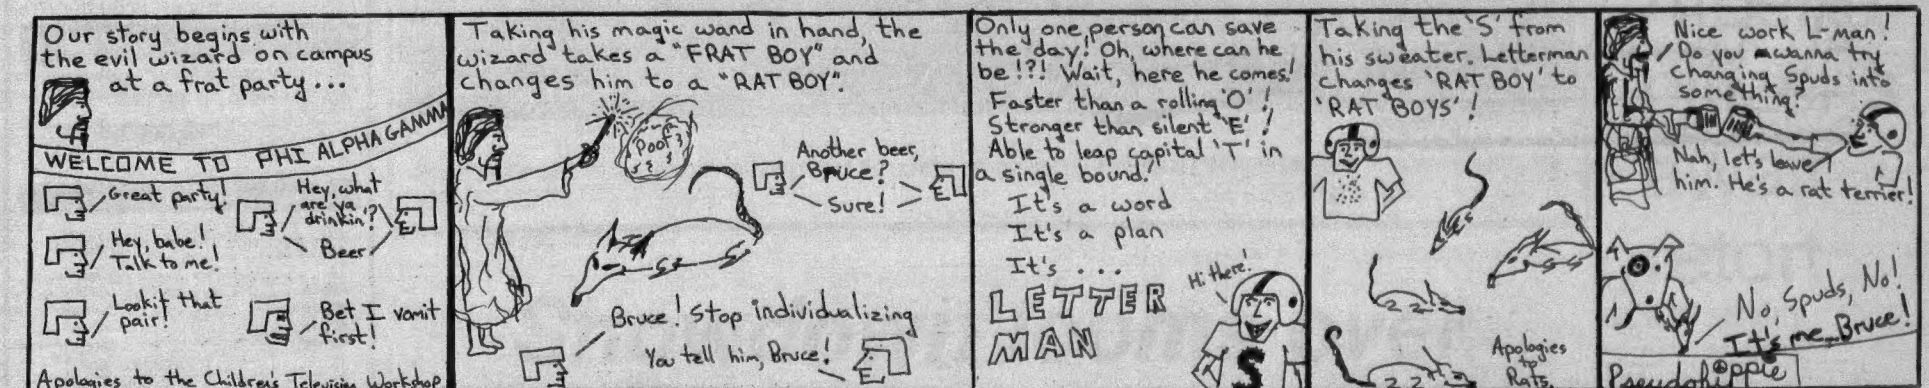 Our story begins with
the evil wizard on campus
at a frat party...
WELCOME TO PHI ALPHA GAMMA
Great party!
Hey, what
are ya
drinkin'?
Beer
Hey, babe!
Talk to me!
Lookit that
pair!
Bet I vomit
first!
Apologies to the Children's Television Workshop
Taking his magic wand in hand, the
wizard takes a "FRAT BOY" and
changes him to a "RAT BOY".
Poof
Another beer,
Bruce?
Sure!
Bruce! Stop individualizing
You tell him, Bruce!
Only one person can save
the day! Oh, where can he
be!?! Wait, here he comes!
Faster than a rolling 'O'!
Stronger than silent 'E'!
Able to leap capital 'T' in
a single bound!
It's a word
It's a plan
It's...
LETTER
MAN
Hi there!
S
Taking the 'S' from
his sweater. Letterman
changes 'RAT BOY' to
'RAT BOYS'!
Apologies
to
Rats.
Nice work L-man!
Do you wanna try
changing Spuds into
something?
Nah, let's leave
him. He's a rat terrier!
No, Spuds, No!
It's me...Bruce!
Pseudohippie